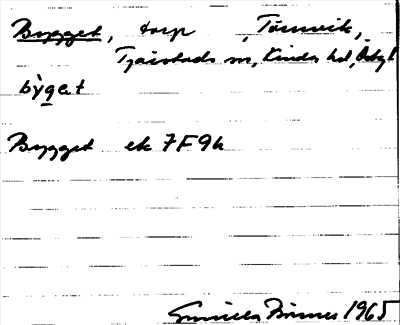 Bygget, torp , Törnevik,
Tjärstads sn, Kinda hd, Östg
bỳget
Bygget ek 7F9h
Gunnela 1965